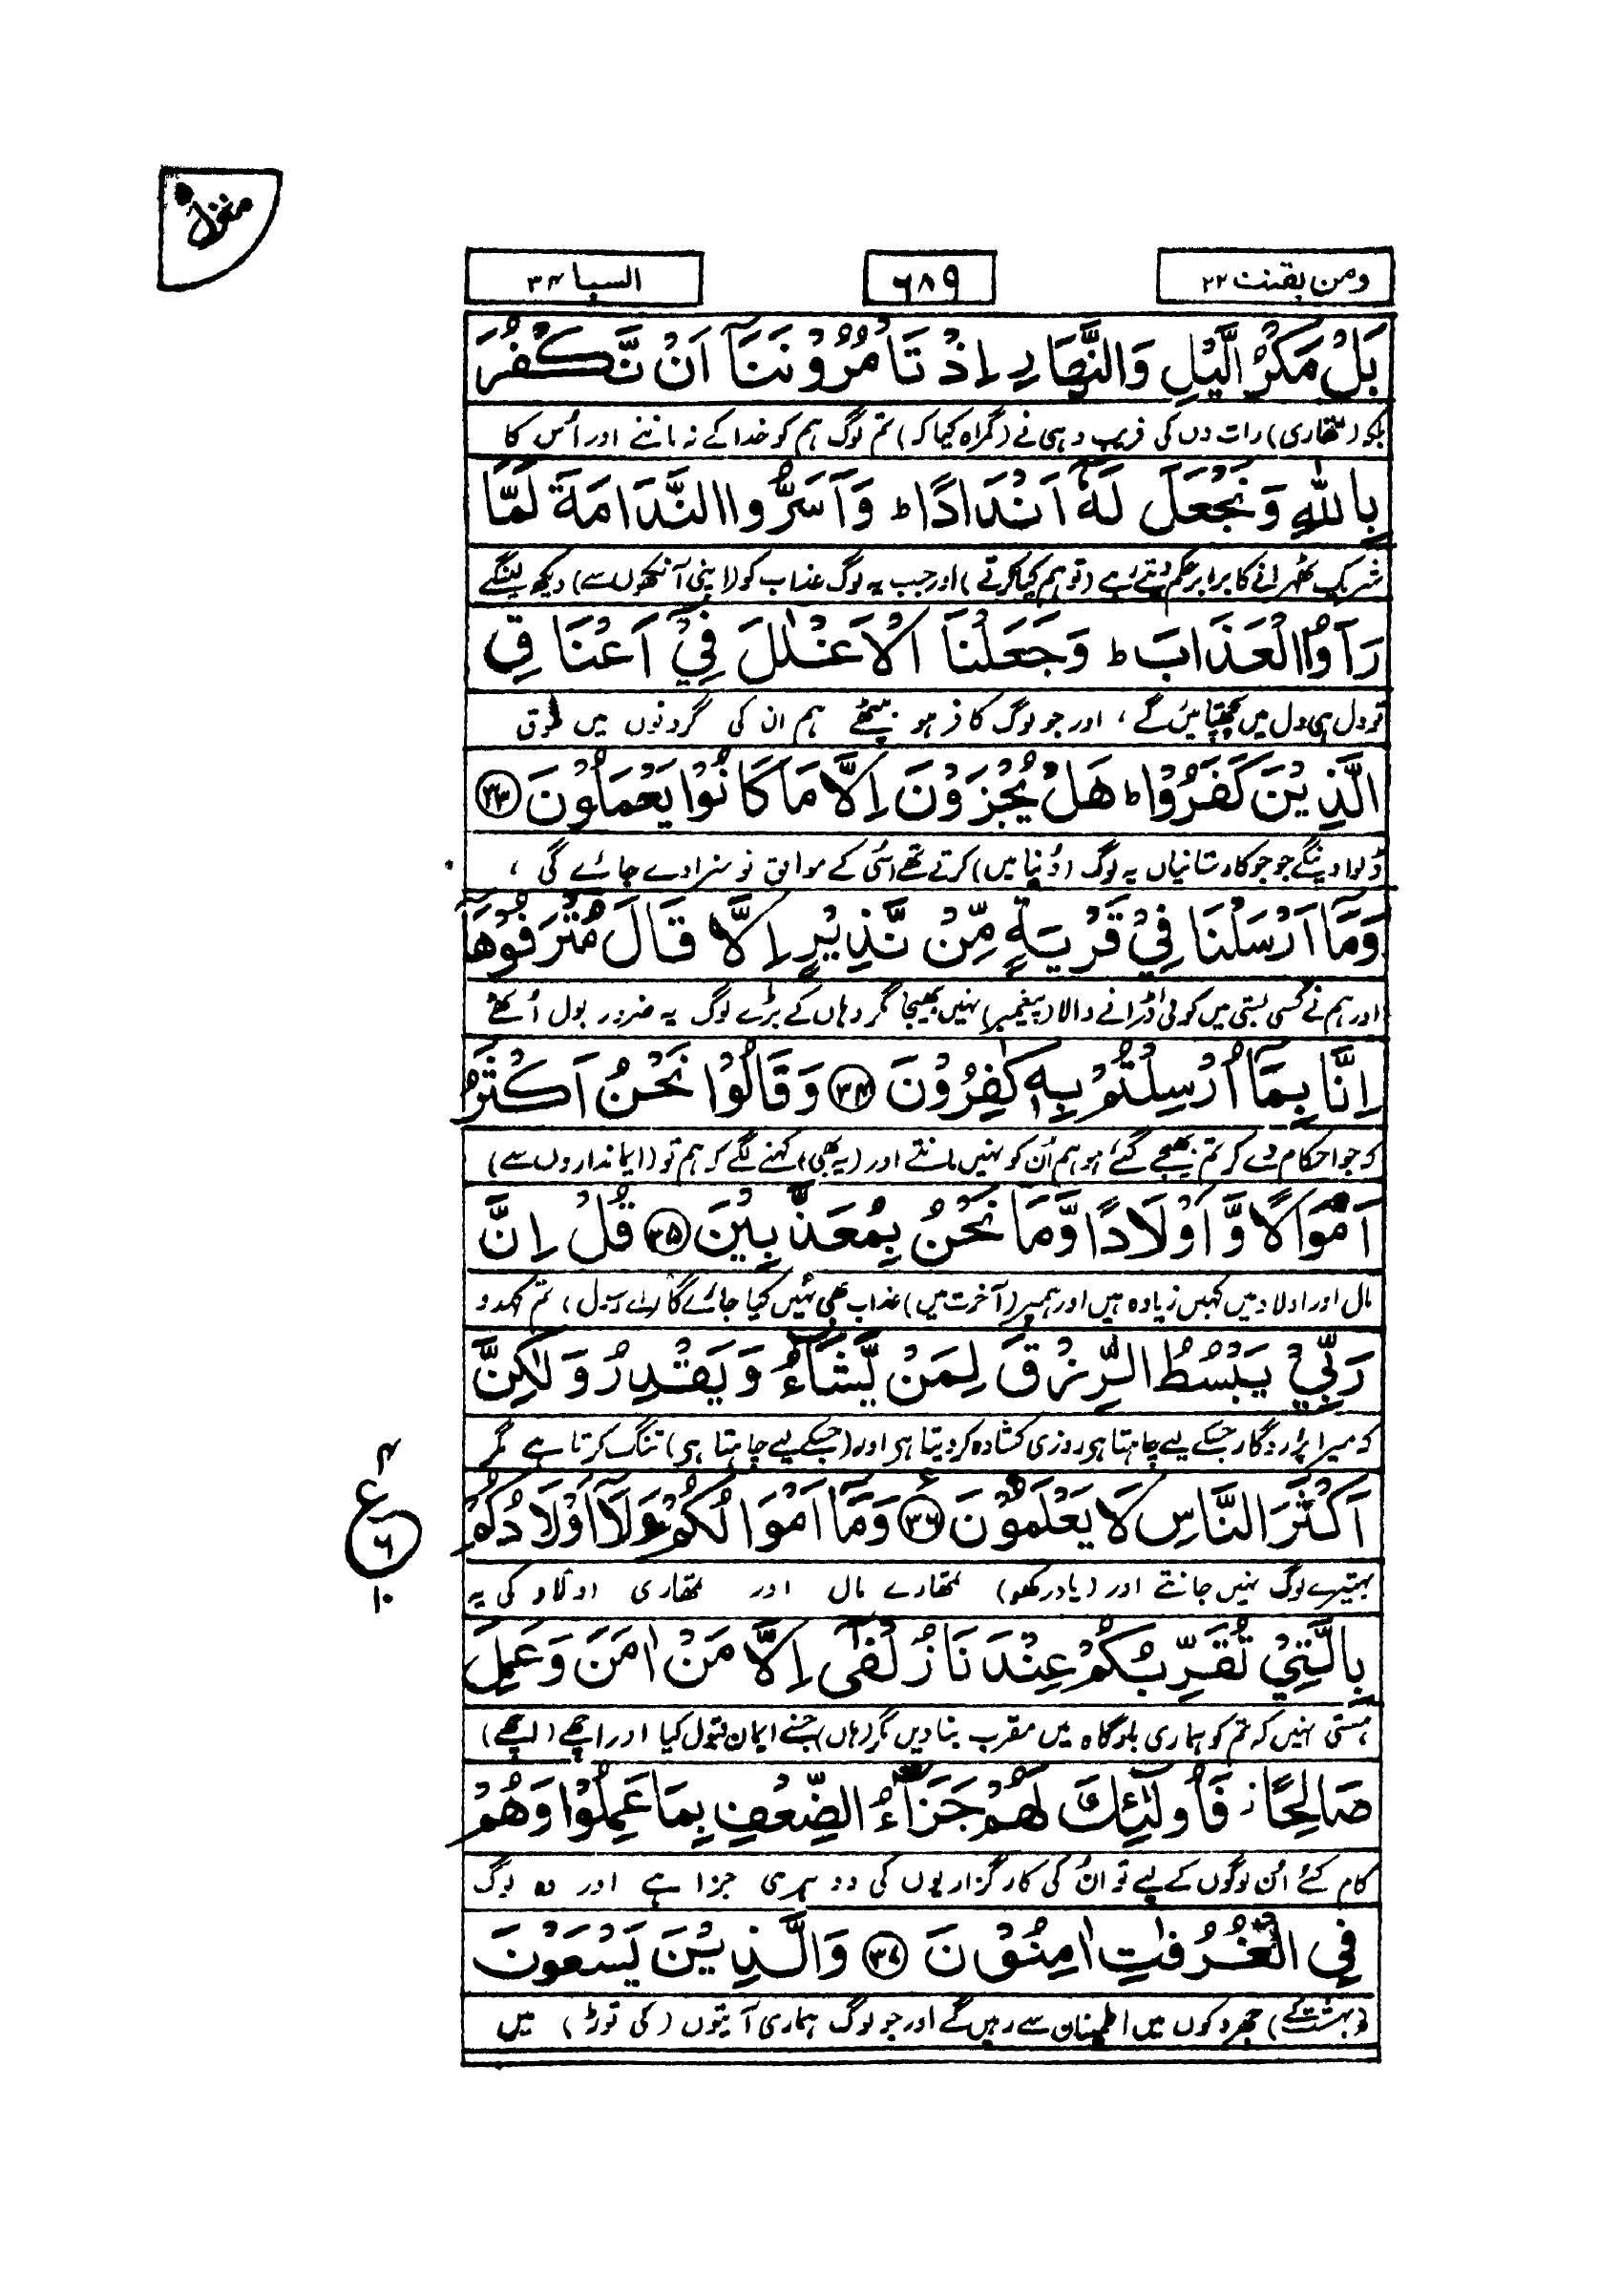 منزل ۵
ومن یقنت ۲۲
۶۸۹
السبا ۳۴
بَلْ مَكْرُ الَّيْلِ وَالنَّهَارِ اِذْ تَاْمُرُوْنَنَآ اَنْ نَّكْفُرَ
بلکہ (تمھاری) رات دن کی فریب دہی نے (گمراہ کیا کہ) تم لوگ ہم کو خدا کے نہ ماننے اور اُس کا
بِاللّٰهِ وَنَجْعَلَ لَهٗٓ اَنْدَادًا ؕ وَاَسَرُّوا النَّدَامَةَ لَمَّا
شریک ٹھہرانے کا برابر حکم دیتے رہے (تو ہم کیا کرتے) اور جب یہ لوگ عذاب کو (اپنی آنکھوں سے) دیکھ لینگے
رَاَوُا الْعَذَابَ ؕ وَجَعَلْنَا الْاَغْلٰلَ فِيْٓ اَعْنَاقِ
تو دل ہی دل میں پچھتائیں گے ، اور جو لوگ کافر ہو بیٹھے ہم ان کی گردنوں میں طوق
الَّذِيْنَ كَفَرُوْا ؕ هَلْ يُجْزَوْنَ اِلَّا مَا كَانُوْا يَعْمَلُوْنَ ۳۳
ڈلوا دینگے جو جو کارستانیاں یہ لوگ (دُنیا میں) کرتے تھے اُسی کے موافق تو سزا دے جائے گی ،
وَمَآ اَرْسَلْنَا فِيْ قَرْيَةٍ مِّنْ نَّذِيْرٍ اِلَّا قَالَ مُتْرَفُوْهَآ
اور ہم نے کسی بستی میں کوئی ڈرانے والا (پیغمبر) نہیں بھیجا مگر وہاں کے بڑے لوگ یہ ضرور بول اُٹھے
اِنَّا بِمَآ اُرْسِلْتُمْ بِهٖ كٰفِرُوْنَ ۳۴ وَقَالُوْا نَحْنُ اَكْثَرُ
کہ جو احکام دے کر تم بھیجے گئے ہو ہم اُن کو نہیں مانتے اور (یہ بھی) کہنے لگے کہ ہم تو (ایمانداروں سے)
اَمْوَالًا وَّاَوْلَادًا وَّمَا نَحْنُ بِمُعَذَّبِيْنَ ۳۵ قُلْ اِنَّ
مال اور اولاد میں کہیں زیادہ ہیں اور ہمپر (آخرت میں) عذاب بھی نہیں کیا جائے گا (اے رسول) تم کہدو
رَبِّيْ يَبْسُطُ الرِّزْقَ لِمَنْ يَّشَآءُ وَيَقْدِرُ وَلٰكِنَّ
کہ میرا پروردگار جسکے لیے چاہتا ہی روزی کشادہ کر دیتا ہی اور (جسکے لیے چاہتا ہی) تنگ کرتا ہے مگر
اَكْثَرَ النَّاسِ لَا يَعْلَمُوْنَ ۳۶ وَمَآ اَمْوَالُكُمْ وَلَآ اَوْلَادُكُمْ
۴
ع
۶
۱۰
بہتیرے لوگ نہیں جانتے اور (یاد رکھو) تمھارے مال اور تمھاری اولاد کی یہ
بِالَّتِيْ تُقَرِّبُكُمْ عِنْدَنَا زُلْفٰٓى اِلَّا مَنْ اٰمَنَ وَعَمِلَ
ہستی نہیں کہ تم کو ہماری بارگاہ میں مقرب بنا دیں مگر (ہاں) جسنے ایمان قبول کیا اور اچھے (اچھے)
صَالِحًا ؗ فَاُولٰٓئِكَ لَهُمْ جَزَآءُ الضِّعْفِ بِمَا عَمِلُوْا وَهُمْ
کام کئے اُن لوگوں کے لیے تو اُن کی کارگزاریوں کی دوہری جزا ہے اور وہ لوگ
فِي الْغُرُفٰتِ اٰمِنُوْنَ ۳۷ وَالَّذِيْنَ يَسْعَوْنَ
(بہشت کے) جھروکوں میں اطمینان سے رہیں گے اور جو لوگ ہماری آیتوں (کی توڑ) میں